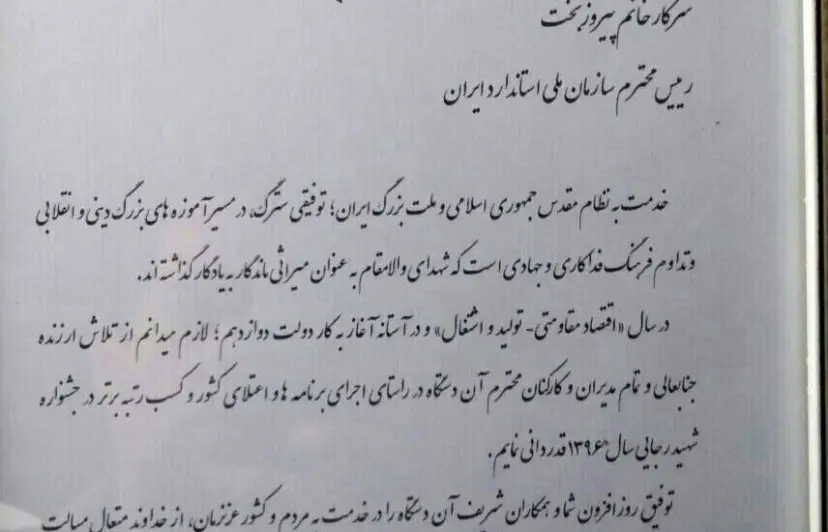 سرکار خانم پیروزبخت
رییس محترم سازمان ملی استاندارد ایران
خدمت به نظام مقدس جمهوری اسلامی و ملت بزرگ ایران؛ توفیقی سترگ، در مسیر آموزه های بزرگ دینی و انقلابی
و تداوم فرهنگ فداکاری و جهادی است که شهدای والامقام به عنوان میراثی ماندگار به یادگار گذاشته اند.
در سال «اقتصاد مقاومتی- تولید و اشتغال» و در آستانه آغاز به کار دولت دوازدهم؛ لازم میدانم از تلاش ارزنده
جنابعالی و تمام مدیران و کارکنان محترم آن دستگاه در راستای اجرای برنامه ها و اعتلای کشور و کسب رتبه برتر در جشنواره
شهید رجایی سال ۱۳۹۶ قدردانی نمایم.
توفیق روزافزون شما و همکاران شریف آن دستگاه را در خدمت به مردم و کشور عزیزمان، از خداوند متعال مسالت